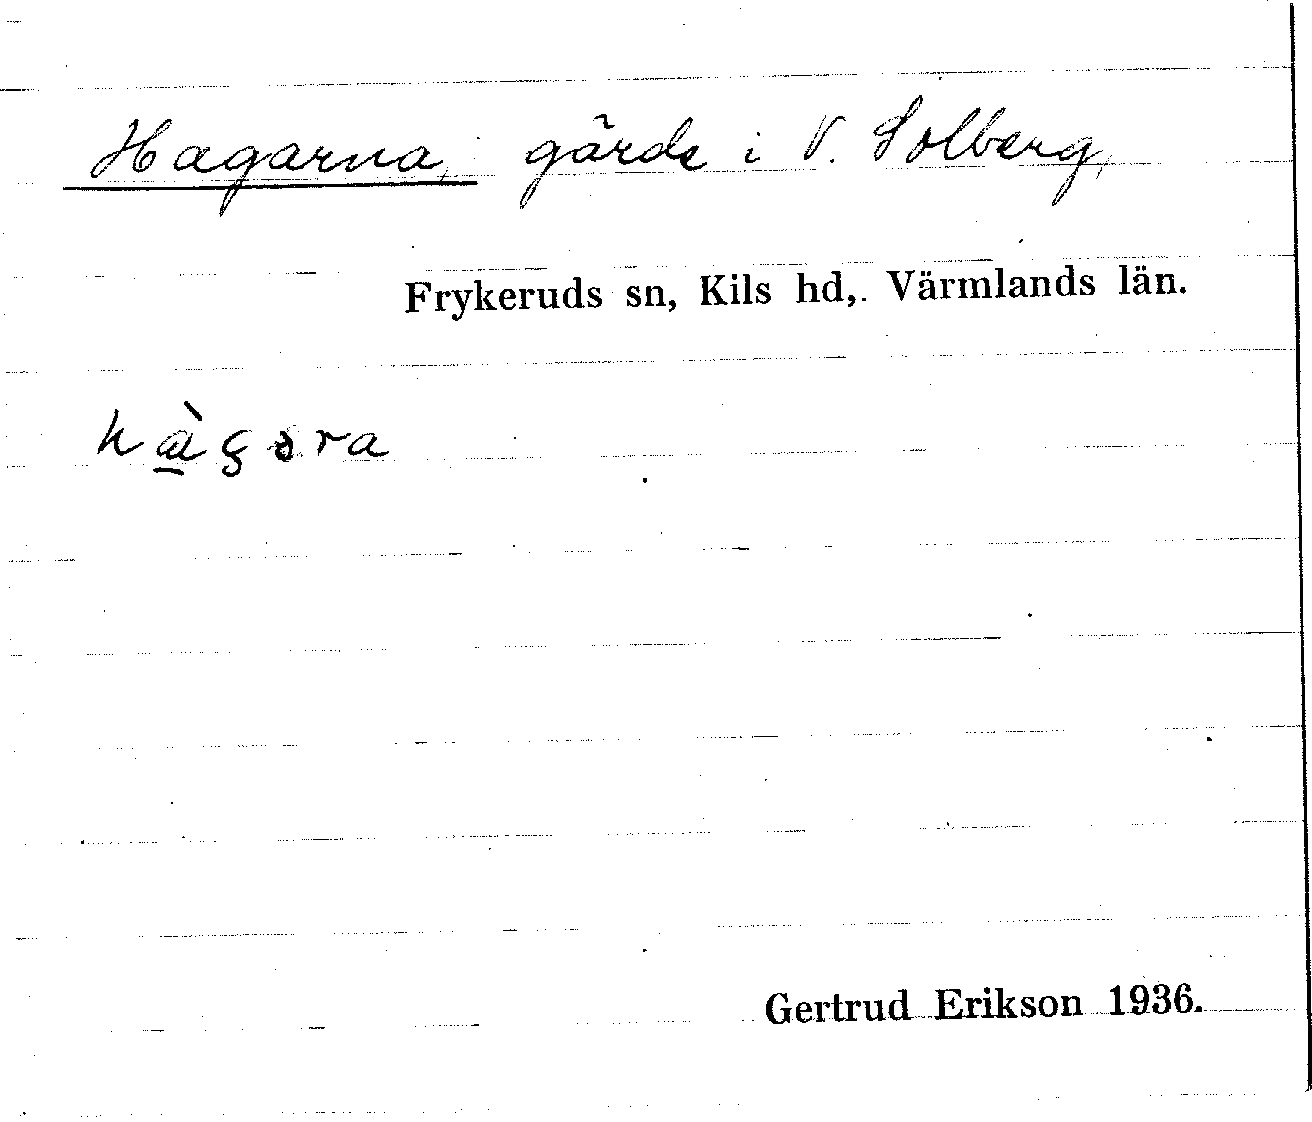 Hagarna, gärde i V. Solberg,
Frykeruds sn, Kils hd, Värmlands län.
hàgəra
Gertrud Erikson 1936.